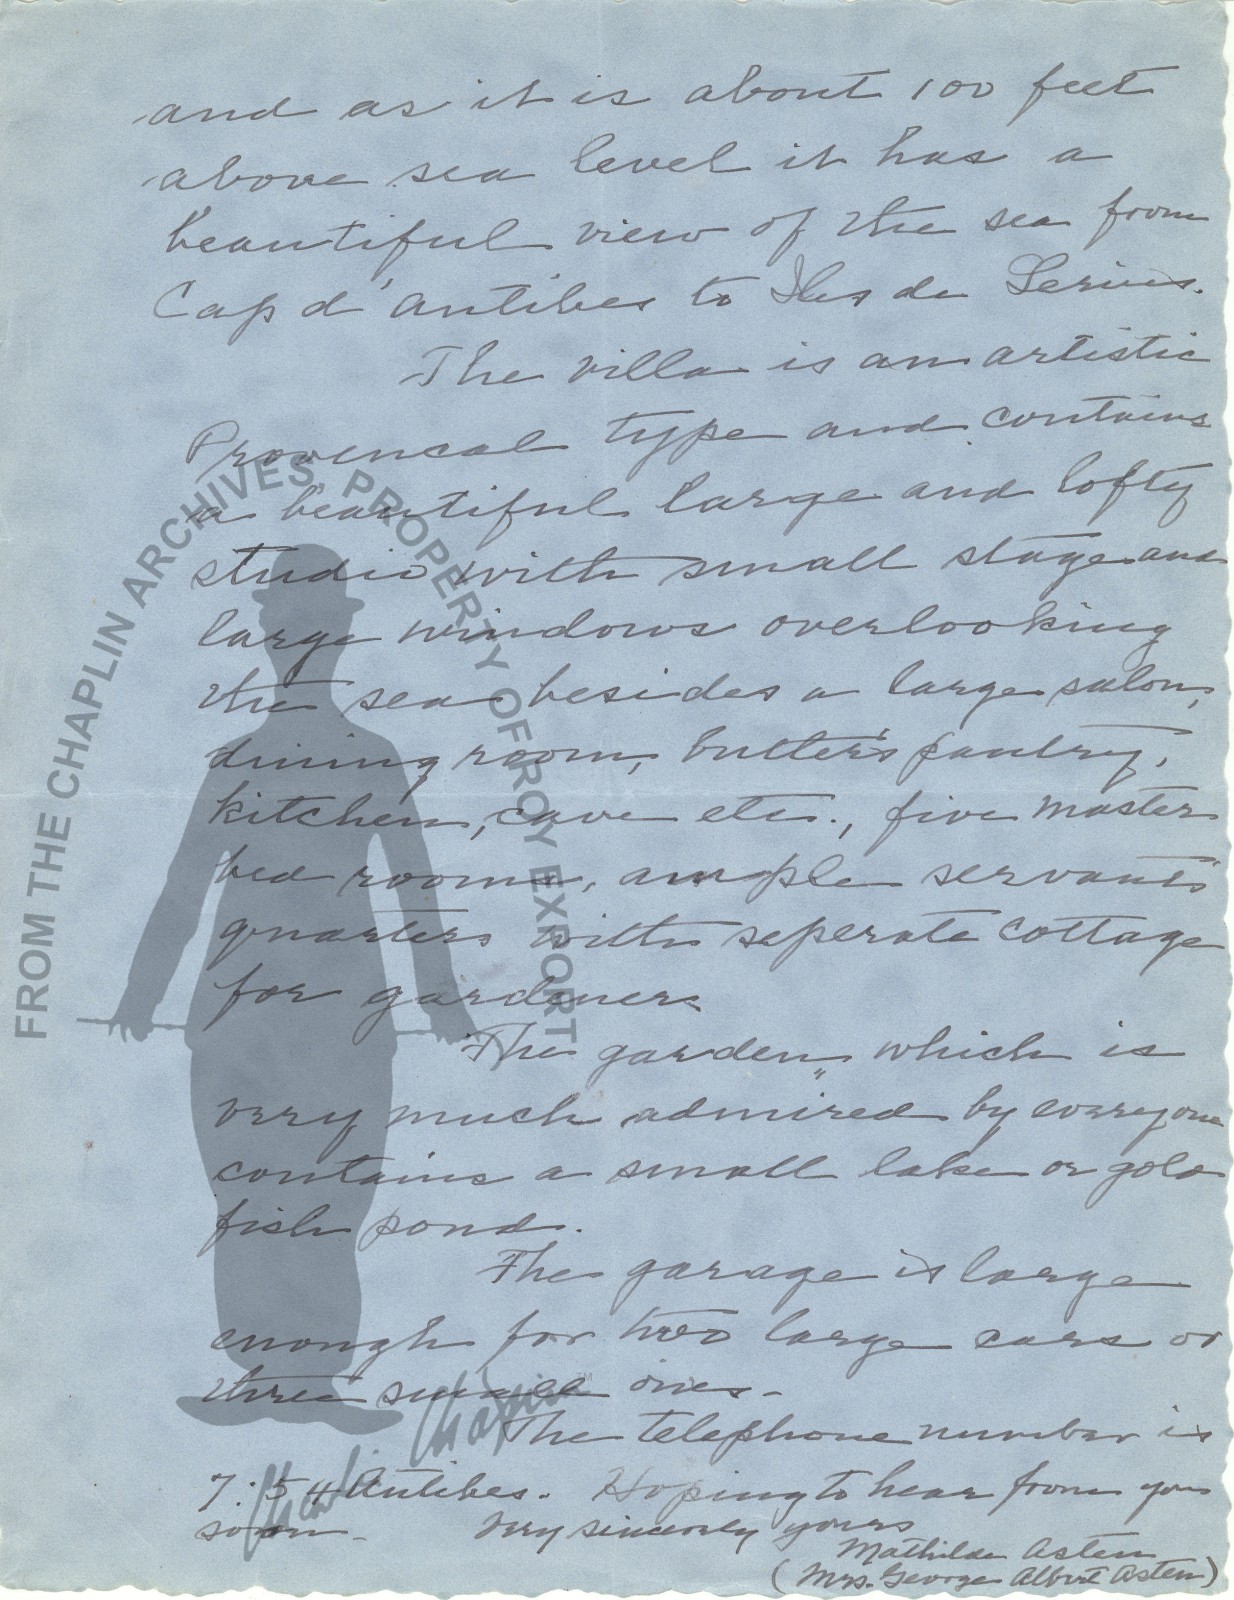 and as it is about 100 feet
above sea level it has a
beautiful view of the sea from
Cap d'Antibes to Iles de Lerins.
The villa is an artistic
Provencal type and contains
a beautiful large and lofty
studio with small stage and
large windows overlooking
the sea besides a large salon,
dining room, butler's pantry,
kitchen, cave etc., five master
bed rooms, ample servants
quarters with seperate cottage
for gardener.
The garden, which is
very much admired by everyone
contains a small lake or gold
fish pond.
The garage is large
enough for two large cars or
three small ones.
The telephone number is
7:54 Antibes. Hoping to hear from you
soon. Very sincerely yours
Mathilde Asten
(Mrs. George Albert Asten)
FROM THE CHAPLIN ARCHIVES, PROPERTY OF ROY EXPORT
Charlie Chaplin